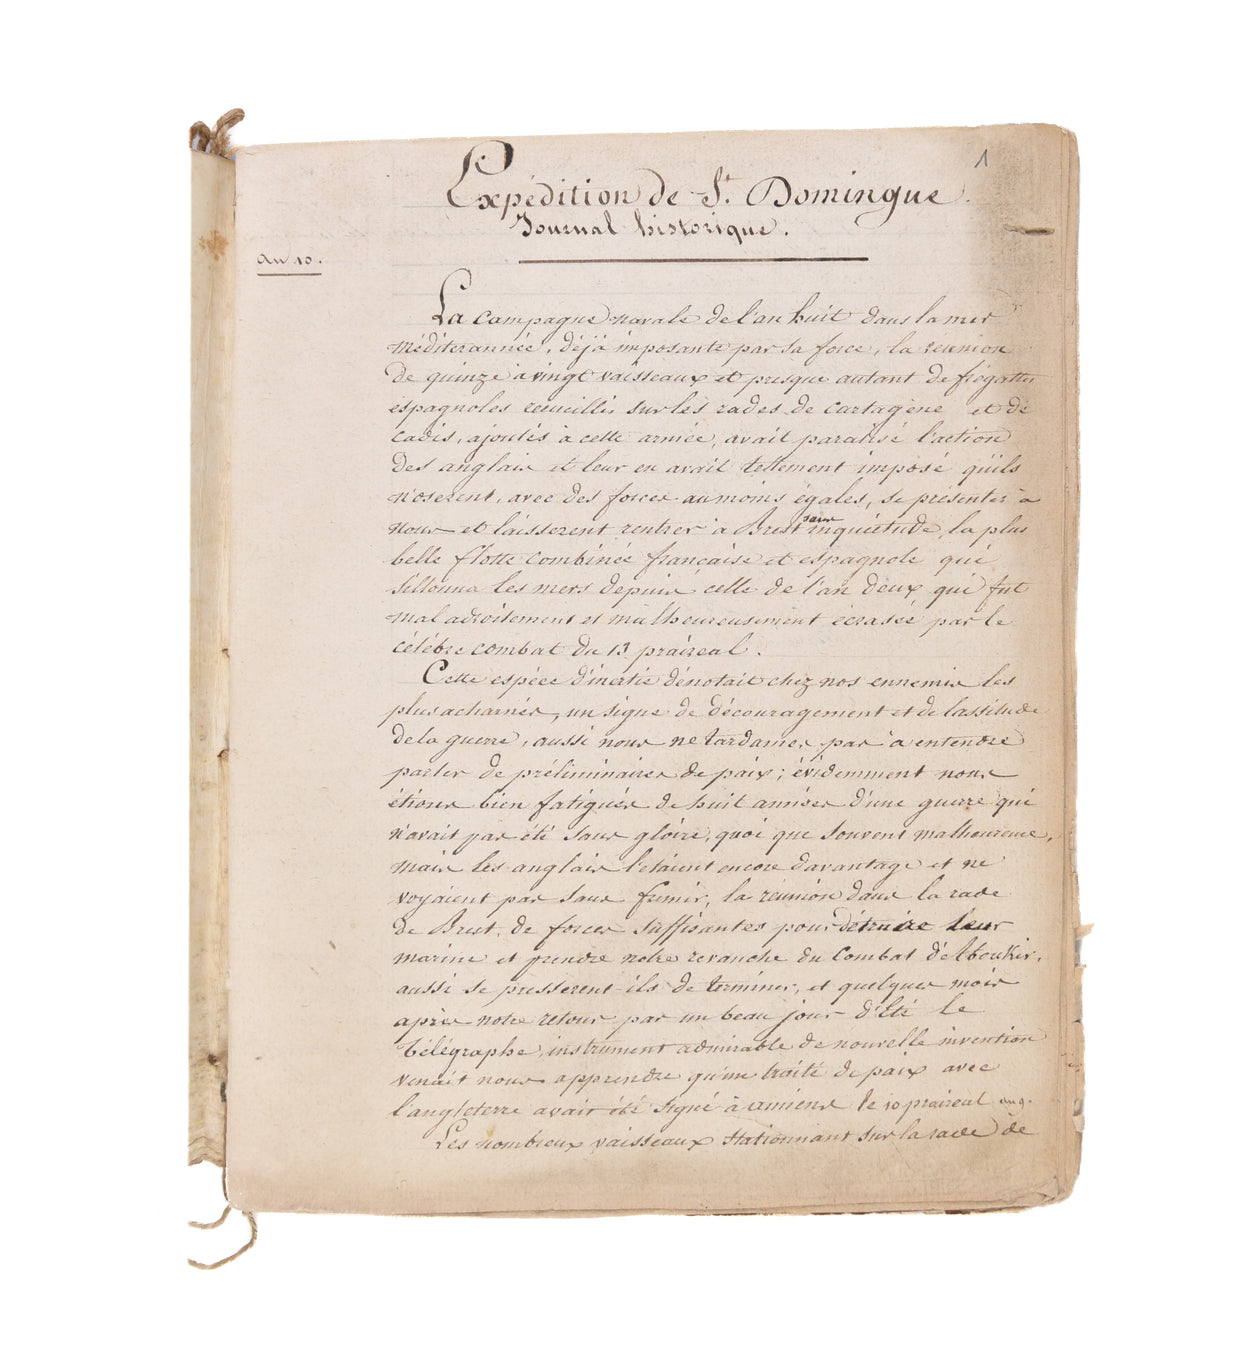 1
Expédition de St. Domingue.
Journal historique.
an 10.
La campagne navale de l'an huit dans la mer
méditerannée, déjà imposante par sa force, la reunion
de quinze à vingt vaisseaux et presque autant de frégattes
espagnoles recueillis sur les rades de Cartagène et de
Cadis, ajoutés à cette armée, avait paralisé l'action
des anglais et leur en avait tellement imposé qu'ils
n'oserent, avec des forces au moins égales, se présenter à
nous et laisserent rentrer à Brest sans inquiétude, la plus
belle flotte combinée française et espagnole qui
sillonna les mers depuis celle de l'an deux qui fut
maladroitement et malheureusement écrasée par le
célébre combat du 13 praireal.
Cette espéce d'inertie dénotait chez nos ennemis les
plus acharnés, un signe de découragement et de lassitude
de la guerre, aussi nous ne tardames pas à entendre
parler de préliminaires de paix; évidemment nous
étions bien fatigués de huit années d'une guerre qui
n'avait pas été sans gloire, quoi que souvent malheureuse,
mais les anglais l'etaient encore davantage et ne
voyaient pas sans frémir, la réunion dans la rade
de Brest, de forces suffisantes pour détruire leur
marine et prendre notre revanche du combat d'Aboukir,
aussi se presserent-ils de terminer, et quelques mois
après notre retour par un beau jour d'Eté le
télégraphe, instrument admirable de nouvelle invention
venait nous apprendre qu'un traité de paix avec
l'angleterre avait été signé à amiens le 10 praireal an 9.
Les nombreux vaisseaux stationnant sur la rade de